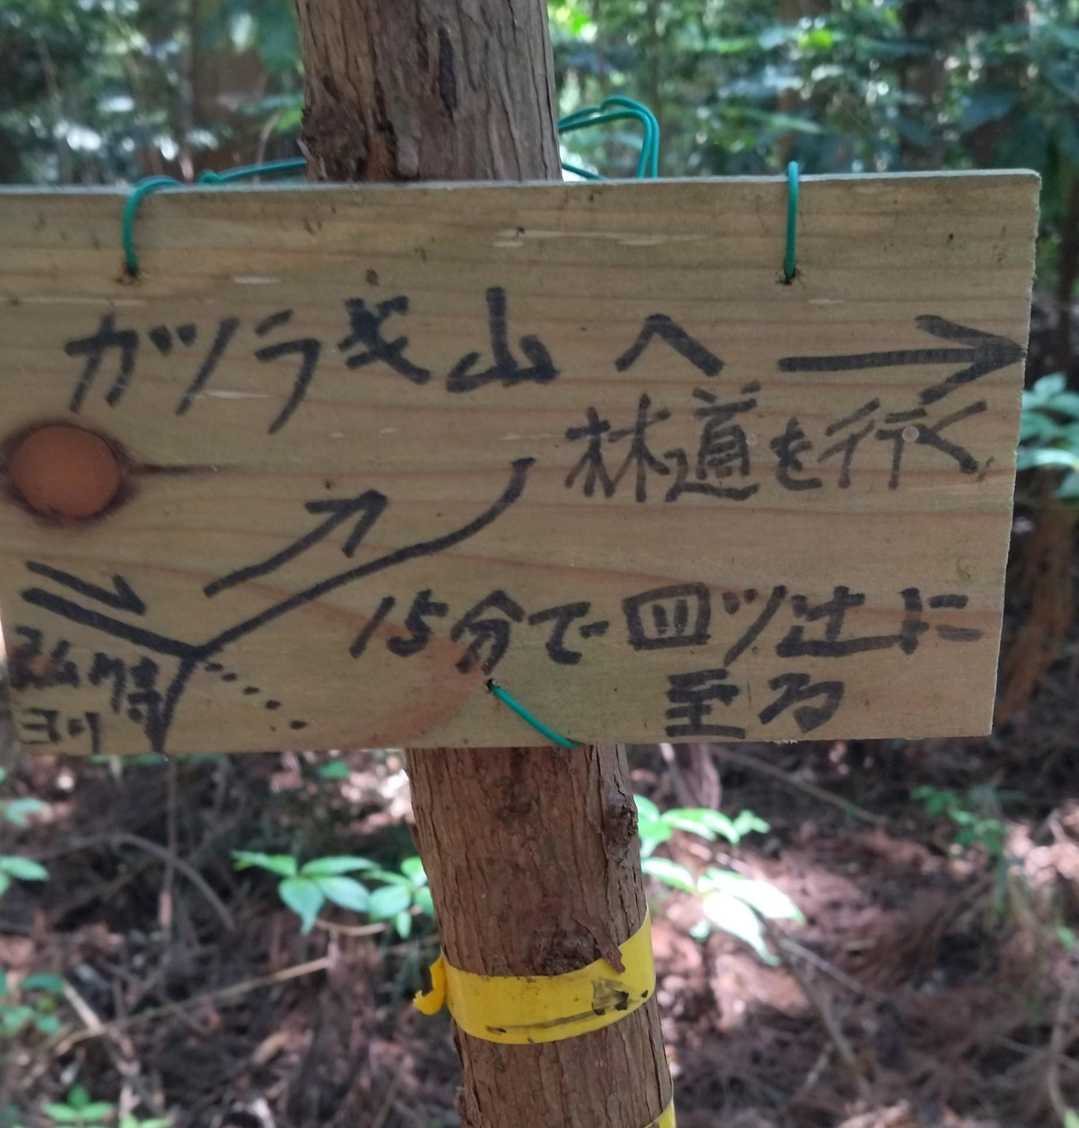 ガツラギ山へ
林道を行く
15分で四ツ辻に
至る
弘川寺
ヨリ